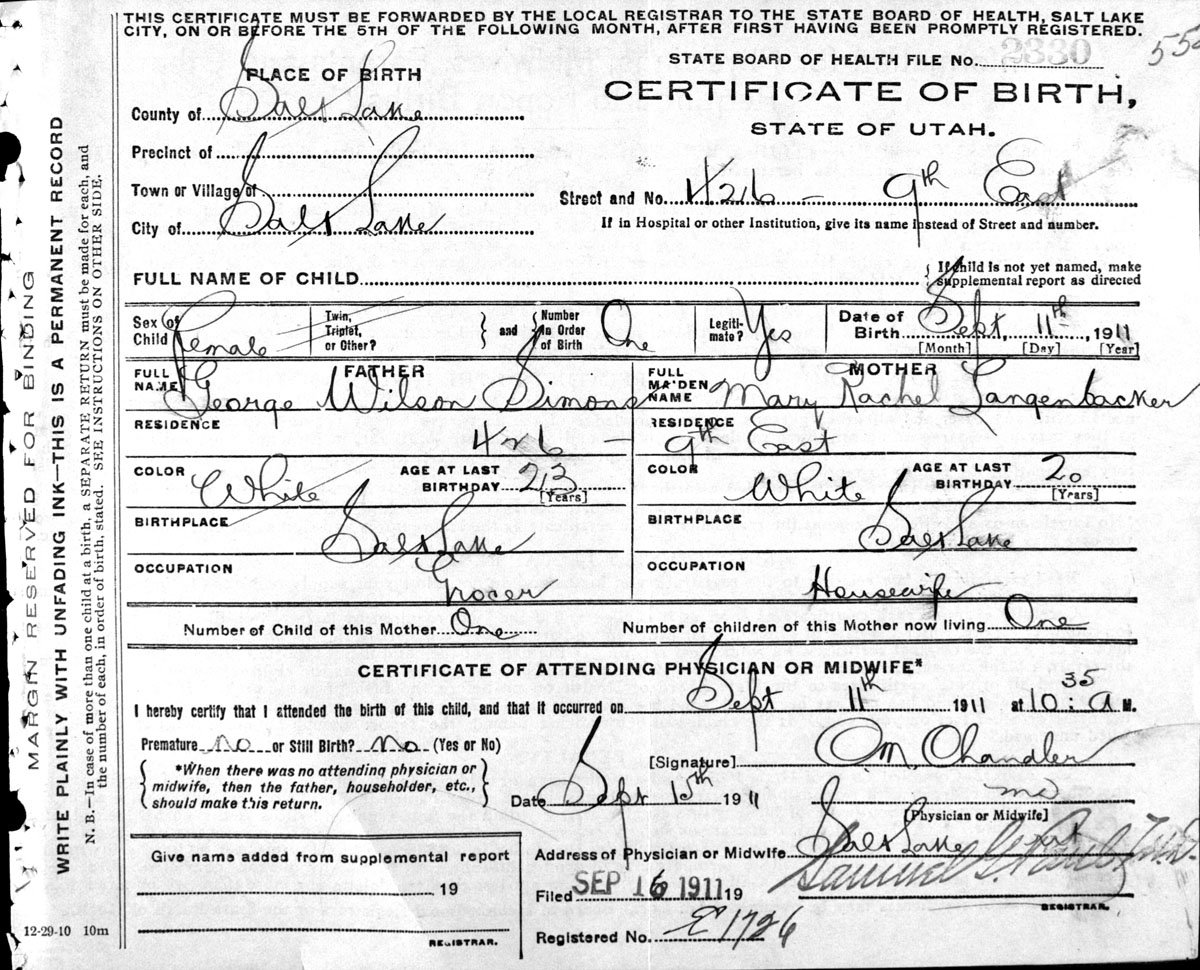 THIS CERTIFICATE MUST BE FORWARDED BY THE LOCAL REGISTRAR TO THE STATE BOARD OF HEALTH, SALT LAKE
CITY, ON OR BEFORE THE 5TH OF THE FOLLOWING MONTH, AFTER FIRST HAVING BEEN PROMPTLY REGISTERED.
STATE BOARD OF HEALTH FILE No. 2330
PLACE OF BIRTH
CERTIFICATE OF BIRTH,
County of Salt Lake
STATE OF UTAH.
Precinct of
Town or Village of
Street and No. 426 - 9th East
City of Salt Lake
If in Hospital or other Institution, give its name instead of Street and number.
FULL NAME OF CHILD
{ If child is not yet named, make
supplemental report as directed
Sex of Child Female
Twin, Triplet, or Other? } and { Number in Order of Birth One
Legitimate? Yes
Date of Birth Sept, 11th, 1911
[Month] [Day] [Year]
FATHER
FULL NAME George Wilson Simons
MOTHER
FULL MAIDEN NAME Mary Rachel Langenbacker
RESIDENCE 426
RESIDENCE 9th East
COLOR White
AGE AT LAST BIRTHDAY 23 [Years]
COLOR White
AGE AT LAST BIRTHDAY 20 [Years]
BIRTHPLACE Salt Lake
BIRTHPLACE Salt Lake
OCCUPATION Grocer
OCCUPATION Housewife
Number of Child of this Mother One
Number of children of this Mother now living One
CERTIFICATE OF ATTENDING PHYSICIAN OR MIDWIFE*
I hereby certify that I attended the birth of this child, and that it occurred on Sept 11th 1911 at 10:35 A M.
Premature No or Still Birth? No (Yes or No)
[Signature] O.M. Chandler
{ *When there was no attending physician or
midwife, then the father, householder, etc.,
should make this return. }
Date Sept 15th 1911
MD
[Physician or Midwife]
Give name added from supplemental report
19
REGISTRAR.
Address of Physician or Midwife Salt Lake
Filed SEP 16 1911 19
Samuel G.
REGISTRAR.
Registered No. E1726
12-29-10 10m
MARGIN RESERVED FOR BINDING
WRITE PLAINLY WITH UNFADING INK—THIS IS A PERMANENT RECORD
N. B.—In case of more than one child at a birth, a SEPARATE RETURN must be made for each, and
the number of each, in order of birth, stated. SEE INSTRUCTIONS ON OTHER SIDE.